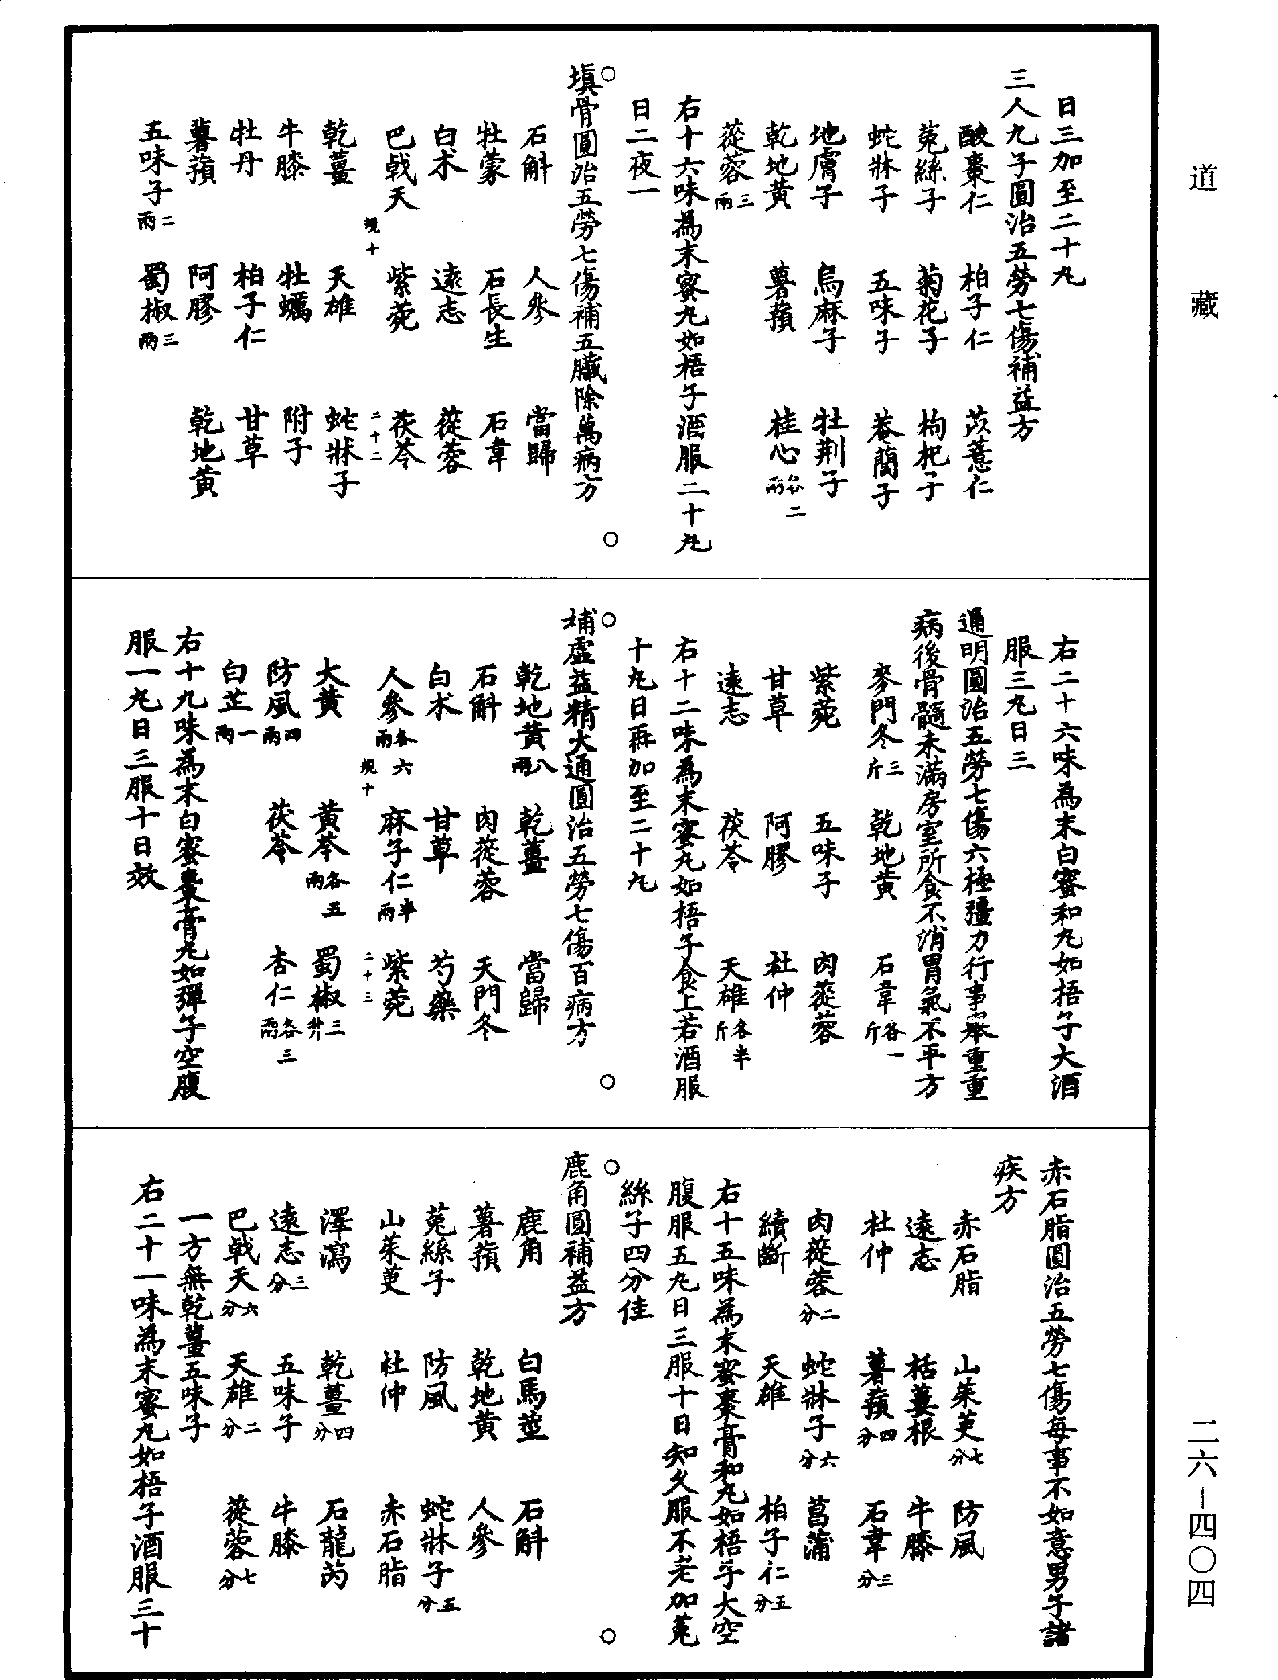 道藏
日三加至二十丸
三人九子圓治五勞七傷補益方
酸棗仁 柏子仁 苡薏仁
菟絲子 菊花子 枸杞子
蛇牀子 五味子 菴藺子
地膚子 烏麻子 牡荊子
乾地黃 薯蕷 桂心各二兩
蓯蓉三兩
右十六味爲末蜜丸如梧子酒服二十丸
日二夜一
○填骨圓治五勞七傷補五臟除萬病方○
石斛 人參 當歸
牡蒙 石長生 石韋
白朮 遠志 蓯蓉
巴戟天 紫菀 茯苓
規十 二十二
乾薑 天雄 蛇牀子
牛膝 牡蠣 附子
牡丹 柏子仁 甘草
薯蕷 阿膠 乾地黃
五味子二兩 蜀椒三兩
右二十六味為末白蜜和丸如梧子大酒
服三丸日三
通明圓治五勞七傷六極彊力行事舉重重
病後骨髓未滿房室所食不消胃氣不平方
麥門冬三斤 乾地黃 石韋各一斤
紫菀 五味子 肉蓯蓉
甘草 阿膠 杜仲
遠志 茯苓 天雄各半斤
右十二味為末蜜丸如梧子食上若酒服
十丸日再加至二十丸
○補虛益精大通圓治五勞七傷百病方○
乾地黃八兩 乾薑 當歸
石斛 肉蓯蓉 天門冬
白朮 甘草 芍藥
人參各六兩 麻子仁半兩 紫菀
規十 二十三
大黃 黃芩各五兩 蜀椒三升
防風四兩 茯苓 杏仁各三兩
白芷一兩
右十九味為末白蜜棗膏丸如彈子空腹
服一丸日三服十日效
赤石脂圓治五勞七傷每事不如意男子諸
疾方
赤石脂 山茱萸七分 防風
遠志 栝蔞根 牛膝
杜仲 薯蕷四分 石韋三分
肉蓯蓉二分 蛇牀子六分 菖蒲
續斷 天雄 柏子仁五分
右十五味為末蜜棗膏和丸如梧子大空
腹服五丸日三服十日知久服不老加菟
絲子四分佳
○鹿角圓補益方○
鹿角 白馬莖 石斛
薯蕷 乾地黃 人參
菟絲子 防風 蛇牀子五分
山茱萸 杜仲 赤石脂
澤瀉 乾薑四分 石龍芮
遠志三分 五味子 牛膝
巴戟天六分 天雄二分 蓯蓉七分
一方無乾薑五味子
右二十一味為末蜜丸如梧子酒服三十
二六-四〇四